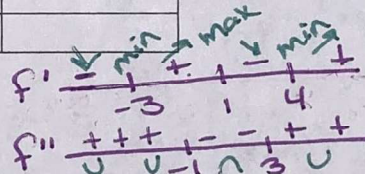 min max min
f' - + - +
-3 1 4
f'' + + + - - + +
-1 3